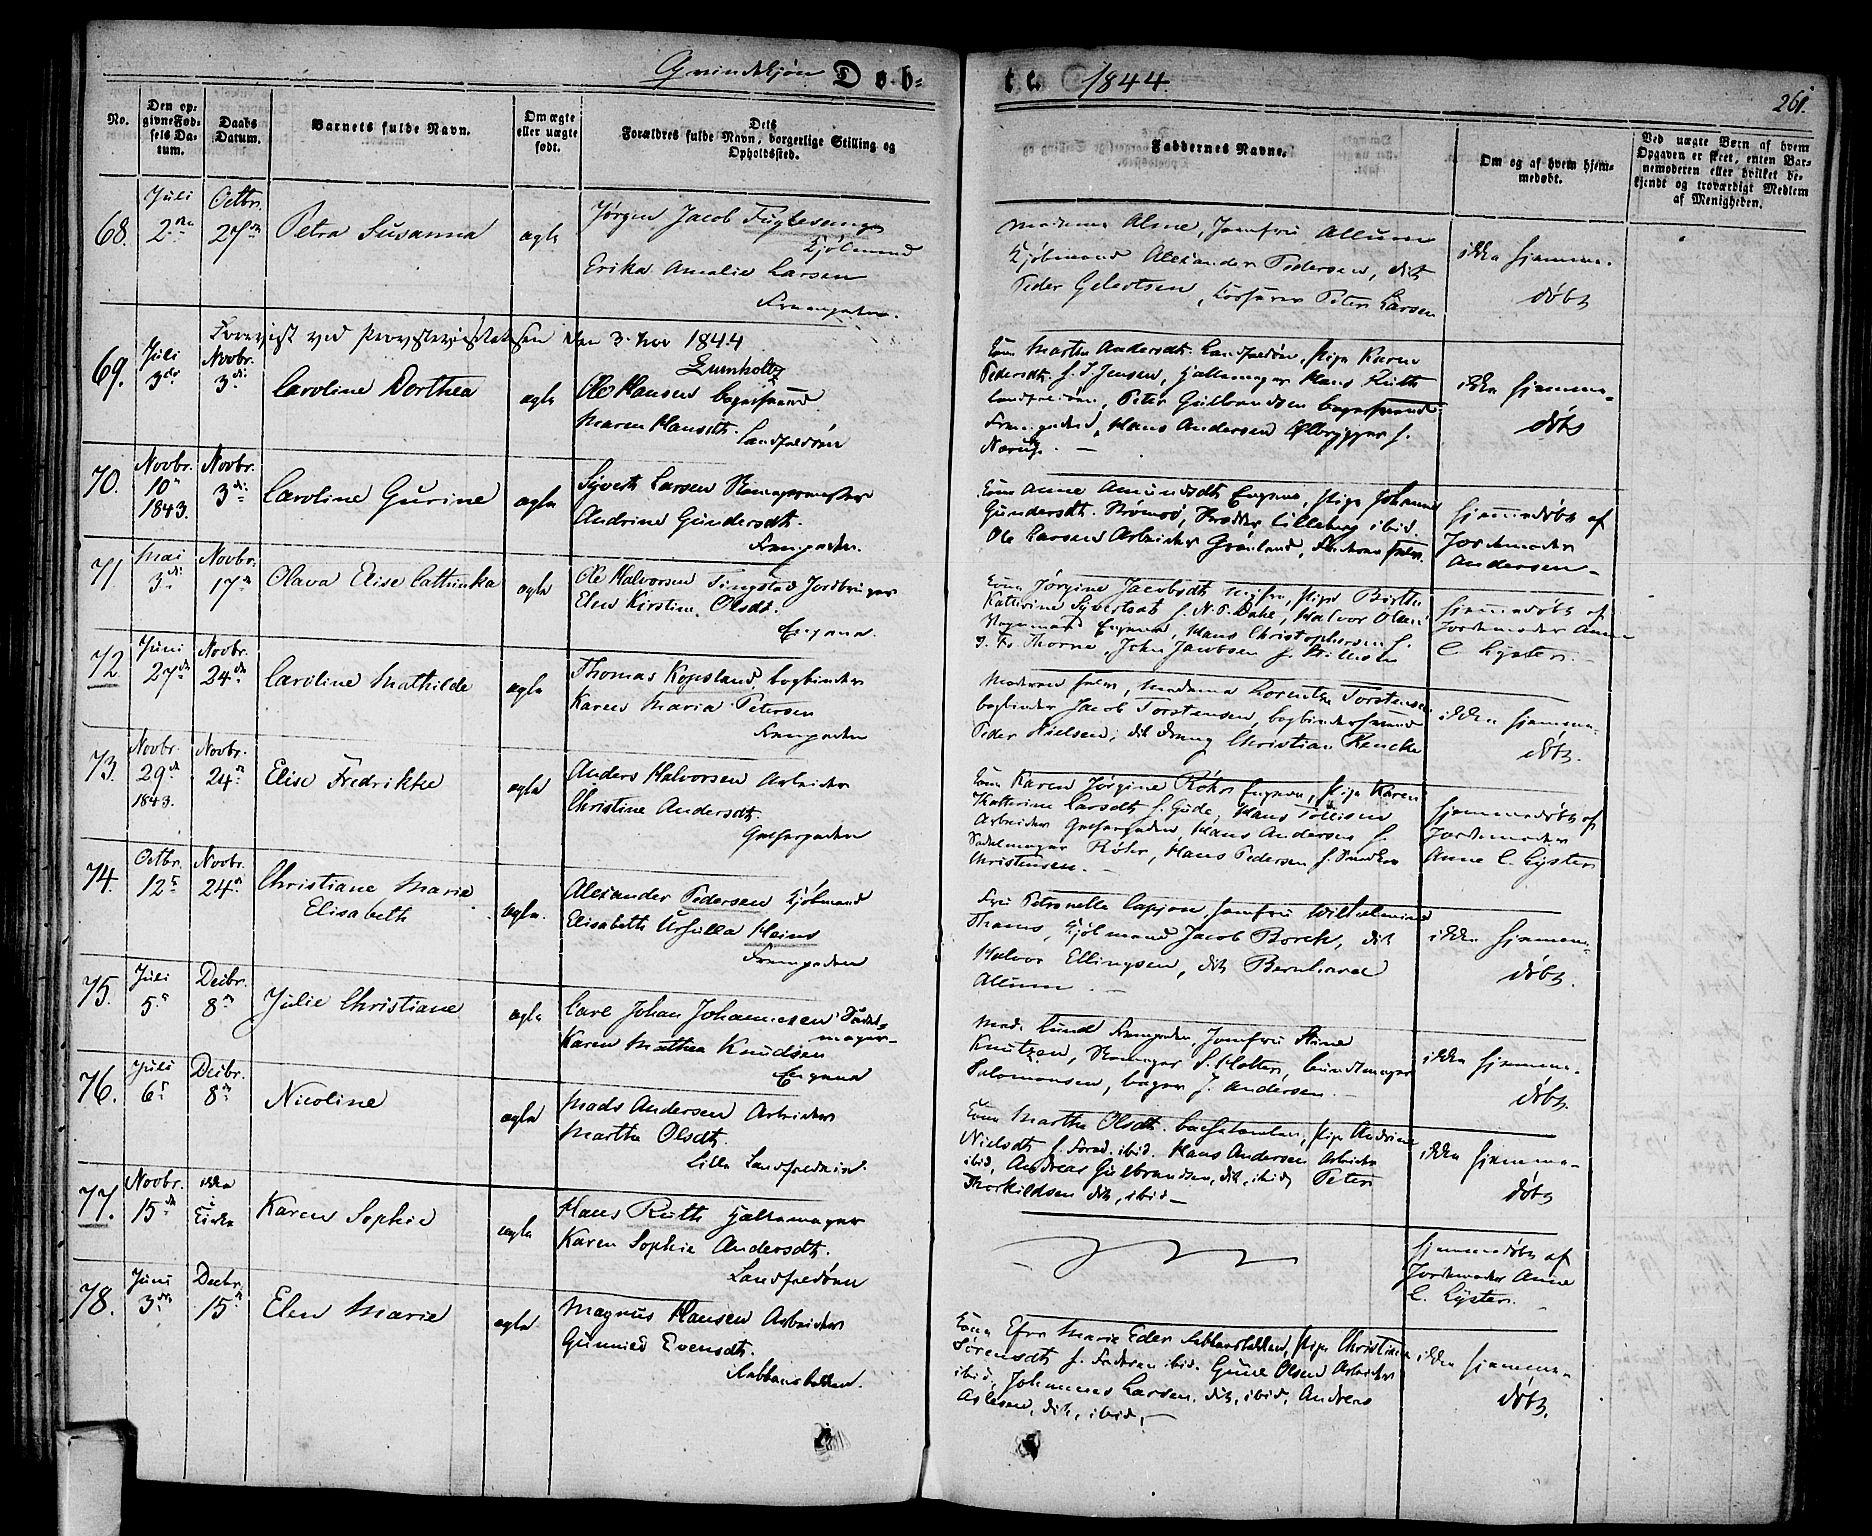 Qvindekjøn Døb-
te 1844.
261.
No.
Den op-
givne Fød-
sels Da-
tum.
Daabs
Datum.
Barnets fulde Navn.
Om ægte
eller uægte
født.
Dets
Forældres fulde Navn, borgerlige Stilling og
Opholdssted.
Faddernes Navne.
Om og af hvem hjem-
medøbt.
Ved uægte Børn af hvem
Opgaven er skeet, enten Bar-
nemoderen eller hvilket be-
kjendt og troværdigt Medlem
af Menigheden.
68.
Juli
2den
Octbr.
27de
Petra Susanna
ægte
Jørgen Jacob Fuglesang
Kjøbmand
Erika Amalie Larsen
Madame Alme, Jomfru Allum
Kjøbmand Alexander Pedersen, dito
Peder Gelertsen, Peter Larsen
ikke hjemme-
døbt
Foreviist ved Provstevisitatsen den 3. Nov 1844
Lumholtz
69.
Juli
3die
Novbr.
3die
Caroline Dorthea
ægte
Ole Hansen bagersvend
Maren Hansdt.
Landfaldøen
Kone Martha Andersdt. Landfaldøen, Pige Karen
Pedersdt. f. J. Jensen, Hans Ruth
Landfaldøen, Peter Gulbrandsen bagersvend
Hans Andersen Ølbrygger f.
ikke hjemme-
døbt
70.
Novbr.
10de
1843.
Novbr.
3die
Caroline Gurine
ægte
Syvert Larsen
Andrine Gundersdt.
Kone Anne Amundsdt. Engene, Pige Johanne
Gundersdt. Strømsø, Lilleberg ibid
Ole Larsen Arbeider Grønland, Faderen selv.
hjemmedøbt af
Jordemoder
Andersen
71
Mai
3die
Novbr.
17de
Olava Elise Cathinka
ægte
Ole Halvorsen Tingstad Jordbruger
Elen Kirstine Olsdt.
Engene.
Kone Jørgine Jacobsdt. Pige Birthe
Katterine Syvertsdt f. N. P. Dahl, Halvor Olsen
Engene, Hans Christophersen f.
Thorne, John Jacobsen f.
hjemmedøbt af
Jordemoder Anne
C. Lyster.
72
Juni
27de
Novbr.
24de
Caroline Mathilde
ægte
Thomas Kopsland bogbinder
Karen Maria Petersen
Moderen selv, Madame Lorentze Torstensen
bogbinder Jacob Torstensen, bogbindersvend
Peder Nielsen, dito dreng Christian Hencke
ikke hjemme-
døbt.
73.
Novbr.
29de
1843.
Novbr.
24de
Elise Fredrikke
ægte
Anders Halvorsen Arbeider
Christine Andersdt.
Kone Karen Jørgine Röhr Engene, Pige Karen
Katterine Larsdt f. Gude, Hans Tollisen
Arbeider Hans Andersen f.
Sadelmager Röhr, Hans Pedersen f.
Christensen.
hjemmedøbt af
Jordemoder
Anne C. Lyster
74.
Octbr.
12te
Novbr.
24de
Christiane Marie
Elisabeth
ægte.
Alexander Pedersen Kjøbmand
Elisabeth Ursulla Heins
Fru Petronelle Cappen, Jomfru Wilhelmine
Thams, Kjøbmand Jacob Borch, dito
Halvor Ellingsen, dito Bernhard
Allum
ikke hjemme-
døbt.
75.
Juli
5te
Decbr.
8de
Julie Christiane
ægte
Carl Johan Johannesen Sadel-
mager
Karen Mathea Knudsen
Engene
Mad. Lund Jomfru Stine
Knutzen, S. Holter, bundtmager
Salomonsen, bager J. Andersen.
ikke hjemme-
døbt.
76.
Juli
6te
Decbr.
8de
Nicoline
ægte
Mads Andersen Arbeider
Martha Olsdt.
Lille Landfaldøen.
Kone Martha Olsdt. Pige Andrine
Nielsdt. f. ibid. Hans Andersen Arbeider
ibid, Andreas Gulbrandsen, dito, ibid, Peter
Thorkildsen dito, ibid
ikke hjemme-
døbt
77.
Novbr.
15de
ikke
i
Kirke
Karen Sophie
ægte
Hans Ruth
Karen Sophie Andersdt.
Landfaldøen
hjemmedøbt af
Jordemoder Anne
C. Lyster.
78.
Juni
3die
Decbr.
15de
Elen Marie
ægte
Magnus Hansen Arbeider
Gunnild Evensdt.
Kone Marie Eder Pige Christiane
Sørensdt. f. Faderen ibid. Gune Olsen Arbeider
ibid, Johannes Larsen, dito, ibid, Andreas
Aslesen, dito, ibid,
ikke hjemme-
døbt.